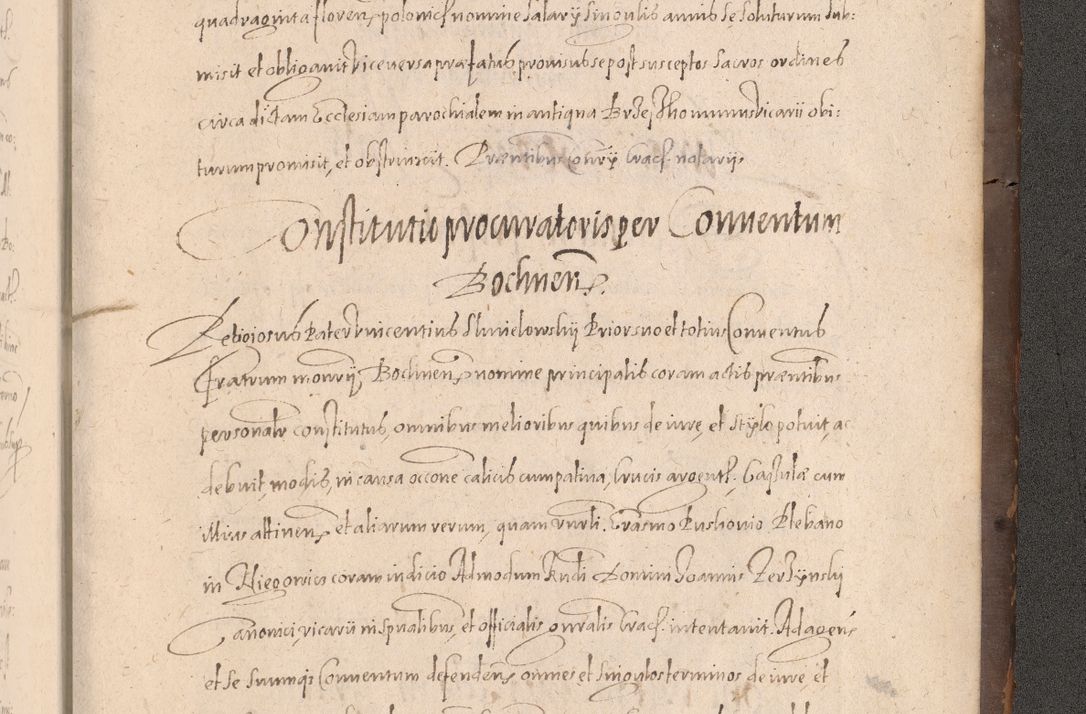 quadraginta floren. polonicẜ nomine salarÿ singulis annis se soluturum sub:
misit et obligavit vice versa præfatus provisus se post susceptos sacros ordines
circa dictam Ecclesiam parochialem in antiqua Brzesztho munus vicarii obi:
turum promisit, et obstrinxit. Præsentibus Cracẜ. notarÿs
Constitutio procuratoris per Conventum
Bochnen.
Religiosus Pater Vincentius Prior suo et totius Conventus
Fratrum Bochnen. nomine principalis coram actis præntibus
personalr constitutus, omnibus melioribus quibus de iure, et stÿlo potuit, ac
debuit, modis, in causa occone calicis cum patina, Crucis argent., Casulæ cum
illius attinen. et aliarum rerum, quam vnrli. Erasmo Plebano
in Niegowicz coram iudicio Admodum Rndi Domini Joannis
Canonici, vicarii in spualibus, et officialis gnralis Cracẜ. intentavit. Ad agen.
et se suumqȝ Conventum defenden. omnes et singulos terminos de iure, et